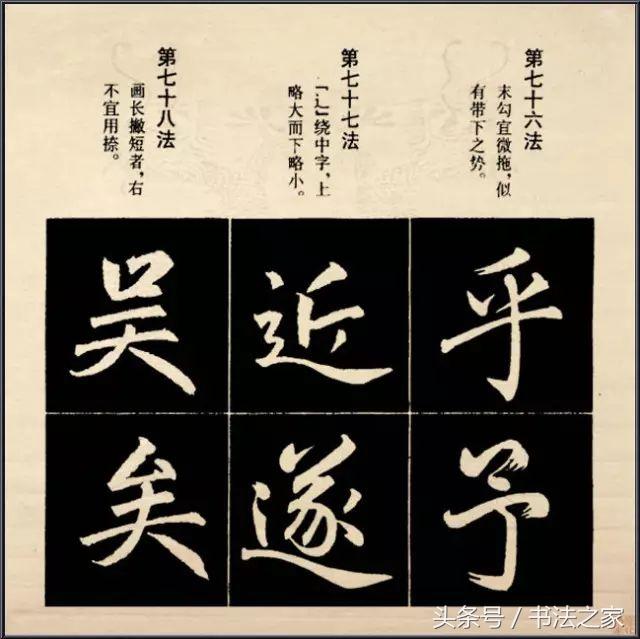 第七十六法
末勾宜微拖，似
有带下之势。
第七十七法
「辶」绕中字，上
略大而下略小。
第七十八法
画长撇短者，右
不宜用捺。
乎
予
近
遂
吴
矣
头条号 / 书法之家